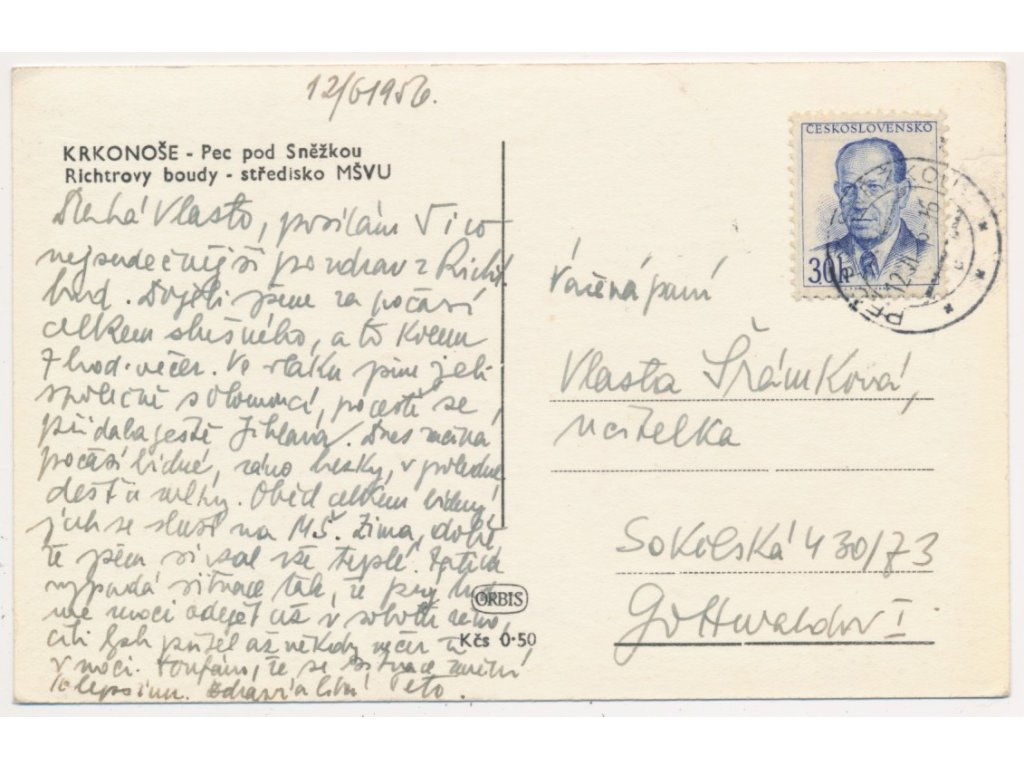 12/6 1956.
KRKONOŠE - Pec pod Sněžkou
Richtrovy boudy - středisko MŠVU
ČESKOSLOVENSKO
30h
Drahá Vlasto, posílám Ti co
nejsrdečnější pozdrav z Richt.
bud. Dojeli jsme za počasí
celkem slušného, a to kolem
7 hod. večer. Ve vlaku jsme jeli
společně s Olomoucí, po cestě se
přidala ještě Jihlava. Dnes začíná
počasí bídné, ráno hezky, v poledne
déšť a mlhy. Oběd celkem bídný
jak se sluší na MŠ. Zima, dobře
že jsem si vzal vše teplé. Zatím
vypadá situace tak, že prý bude
me moci odejet už v sobotu ráno,
čili bych přijel až někdy večer či
v noci. Doufám, že se situace změní
k lepšímu. Zdraví a líbá Peťo.
Vážená paní
Vlasta Šrámková,
učitelka
Sokolská 430/73
Gottwaldov I
ORBIS
Kčs 0·50